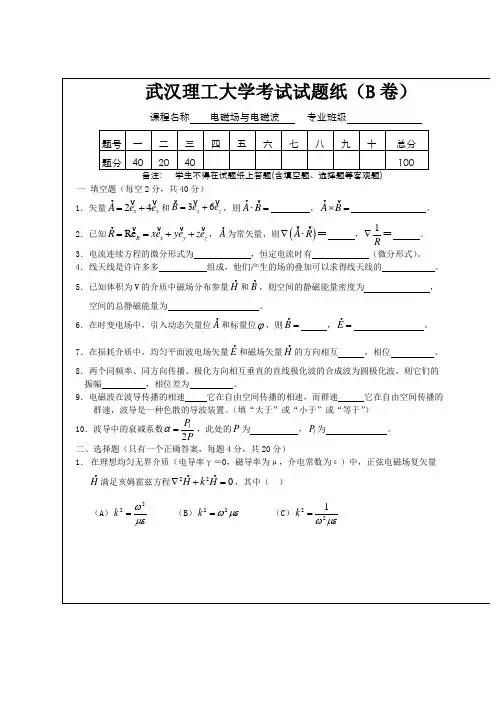 武汉理工大学考试试题纸（B 卷）
课程名称 电磁场与电磁波 专业班级
题号 一 二 三 四 五 六 七 八 九 十 总分
题分 40 20 40 100
备注: 学生不得在试题纸上答题(含填空题、选择题等客观题)
一 填空题（每空2分，共40分）
1．矢量 A = 2e_x + 4e_y 和 B = 3e_x + 6e_z，则 A·B = ，A×B = 。
2．已知 R = Re_R = xe_x + ye_y + ze_z，A 为常矢量，则 ∇(A·R) = ，∇1/R = 。
3．电流连续方程的微分形式为 ，恒定电流时有 （微分形式）。
4．线天线是许许多多 组成，他们产生的场的叠加可以求得线天线的 。
5．已知体积为V的介质中磁场分布参量 H 和 B，则空间的静磁能量密度为 ，
空间的总静磁能量为 。
6．在时变电场中，引入动态矢量位 A 和标量位 φ，则 B = ，E = 。
7．在损耗介质中，均匀平面波电场矢量 E 和磁场矢量 H 的方向相互 ，相位 。
8．两个同频率、同方向传播、极化方向相互垂直的直线极化波的合成波为圆极化波，则它们的
振幅 ，相位差为 。
9．电磁波在波导传播的相速 它在自由空间传播的相速，而群速 它在自由空间传播的
群速，波导是一种色散的导波装置。（填“大于”或“小于”或“等于”）
10．波导中的衰减系数 α = P_l/2P，此处的 P 为 ，P_l 为 。
二、选择题（只有一个正确答案，每题4分，共20分）
1． 在理想均匀无界介质（电导率γ=0，磁导率为μ，介电常数为ε）中，正弦电磁场复矢量
H 满足亥姆霍兹方程 ∇²H + k²H = 0，其中（ ）
（A）k² = ω²/με （B）k² = ω²με （C）k² = 1/ω²με